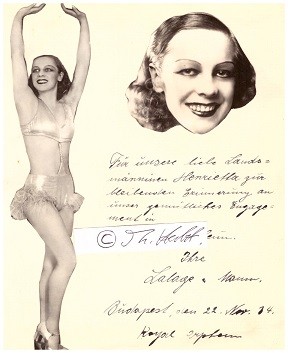 Für unsere liebe Lands-
männinen Henriette zur
bleibenden Erinnerung an
unser gemütliches Engage-
ment in
© Th. Herbst
Ihre
Lalage u. Mann.
Budapest, den 22. Nov. 34.
Royal Orpheum